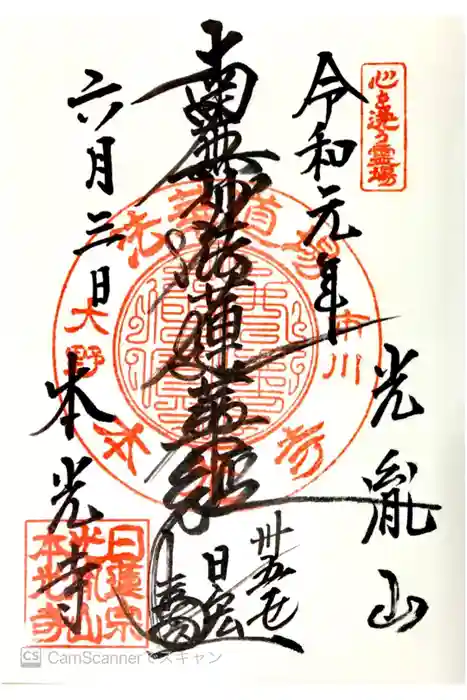 心を洗う霊場
令和元年
光胤山
南無妙法蓮華経
卅五世
日宏
六月三日
本光寺
法華道場
市川
大野
日蓮宗
光胤山
本光寺
CS CamScannerでスキャン